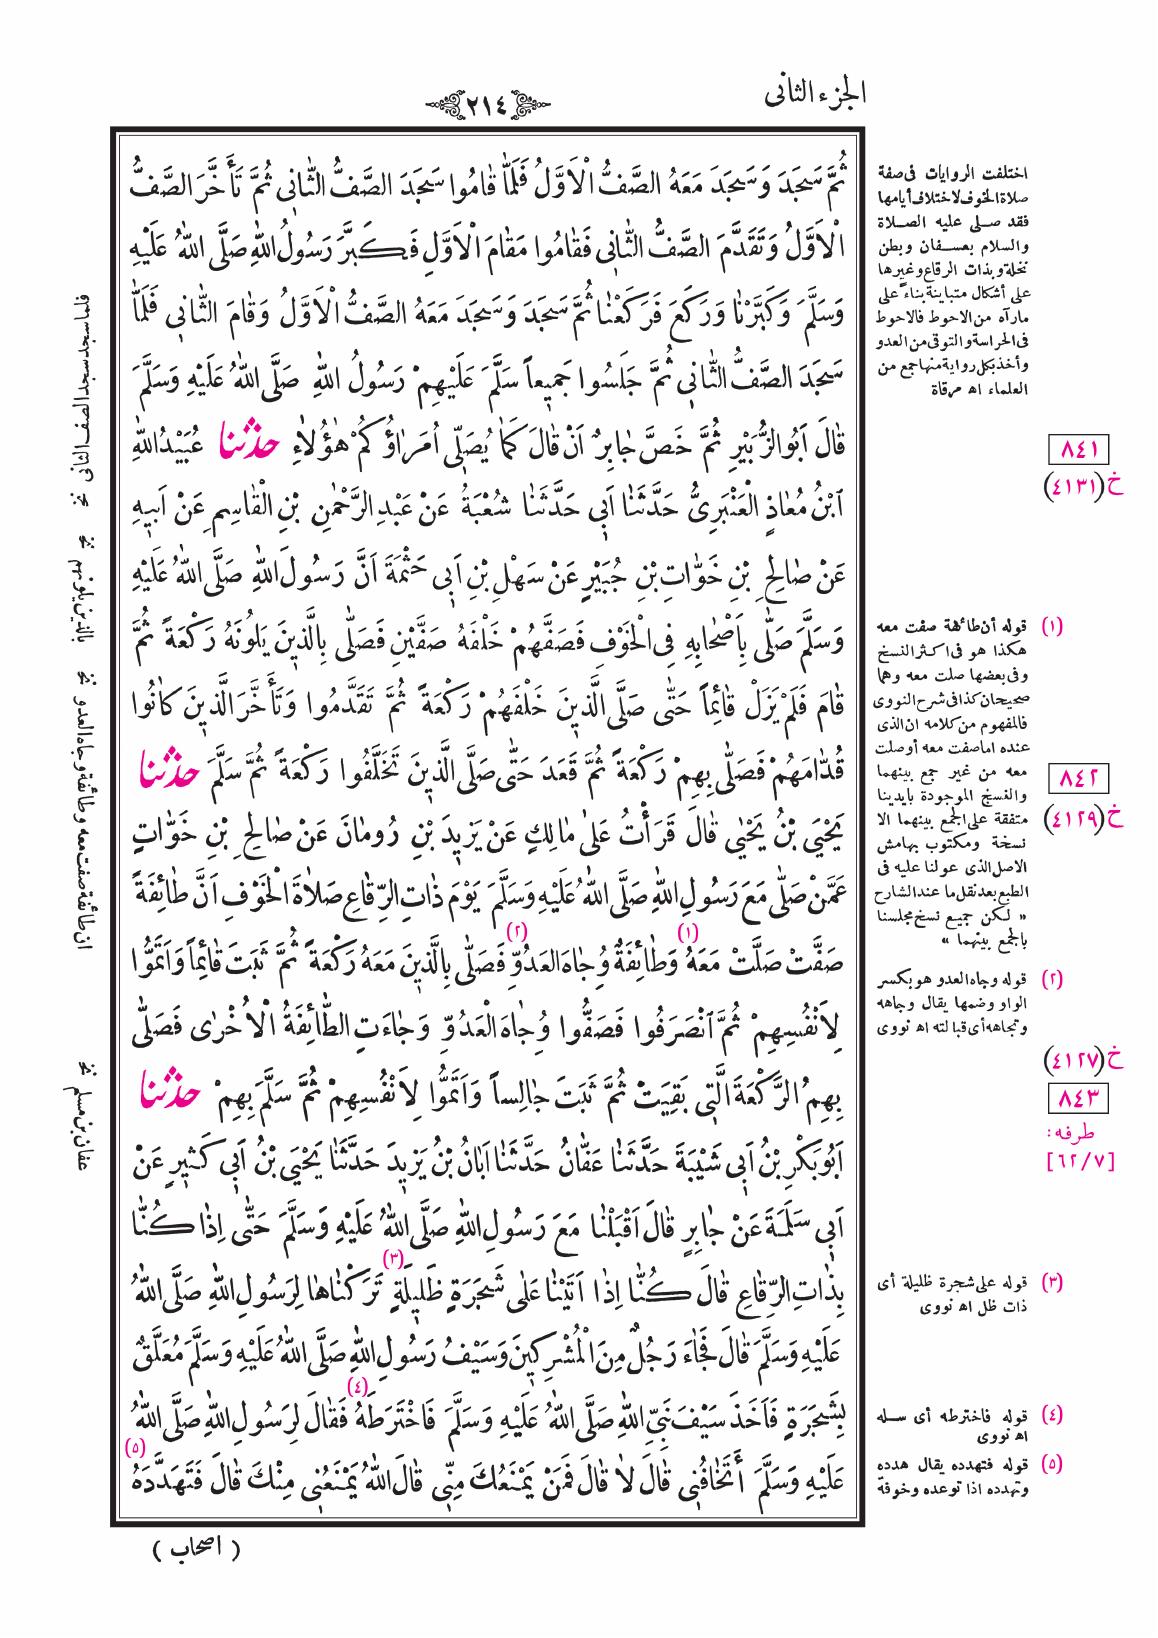 الجزء الثانى
٢١٤
ثُمَّ سَجَدَ وَسَجَدَ مَعَهُ الصَّفُّ الْاَوَّلُ فَلَمَّا قَامُوا سَجَدَ الصَّفُّ الثَّانِى ثُمَّ تَأَخَّرَ الصَّفُّ
الْاَوَّلُ وَتَقَدَّمَ الصَّفُّ الثَّانِى فَقَامُوا مَقَامَ الْاَوَّلِ فَكَبَّرَ رَسُولُ اللهِ صَلَّى اللهُ عَلَيْهِ
وَسَلَّمَ وَكَبَّرْنَا وَرَكَعَ فَرَكَعْنَا ثُمَّ سَجَدَ وَسَجَدَ مَعَهُ الصَّفُّ الْاَوَّلُ وَقَامَ الثَّانِى فَلَمَّا
سَجَدَ الصَّفُّ الثَّانِى ثُمَّ جَلَسُوا جَمِيعاً سَلَّمَ عَلَيْهِمْ رَسُولُ اللهِ صَلَّى اللهُ عَلَيْهِ وَسَلَّمَ
قَالَ اَبُو الزُّبَيْرِ ثُمَّ خَصَّ جَابِرٌ اَنْ قَالَ كَمَا يُصَلِّى اُمَرَاؤُكُمْ هٰؤُلَاءِ حدثنا عُبَيْدُ اللهِ
ابْنُ مُعَاذٍ الْعَنْبَرِىُّ حَدَّثَنَا اَبِى حَدَّثَنَا شُعْبَةُ عَنْ عَبْدِ الرَّحْمٰنِ بْنِ الْقَاسِمِ عَنْ اَبِيهِ
عَنْ صَالِحِ بْنِ خَوَّاتِ بْنِ جُبَيْرٍ عَنْ سَهْلِ بْنِ اَبِى حَثْمَةَ اَنَّ رَسُولَ اللهِ صَلَّى اللهُ عَلَيْهِ
وَسَلَّمَ صَلَّى بِاَصْحَابِهِ فِى الْخَوْفِ فَصَفَّهُمْ خَلْفَهُ صَفَّيْنِ فَصَلَّى بِالَّذِينَ يَلُونَهُ رَكْعَةً ثُمَّ
قَامَ فَلَمْ يَزَلْ قَائِماً حَتَّى صَلَّى الَّذِينَ خَلْفَهُمْ رَكْعَةً ثُمَّ تَقَدَّمُوا وَتَأَخَّرَ الَّذِينَ كَانُوا
قُدَّامَهُمْ فَصَلَّى بِهِمْ رَكْعَةً ثُمَّ قَعَدَ حَتَّى صَلَّى الَّذِينَ تَخَلَّفُوا رَكْعَةً ثُمَّ سَلَّمَ حدثنا
يَحْيَى بْنُ يَحْيٰى قَالَ قَرَأْتُ عَلٰى مَالِكٍ عَنْ يَزِيدَ بْنِ رُومَانَ عَنْ صَالِحِ بْنِ خَوَّاتٍ
عَمَّنْ صَلّٰى مَعَ رَسُولِ اللهِ صَلَّى اللهُ عَلَيْهِ وَسَلَّمَ يَوْمَ ذَاتِ الرِّقَاعِ صَلَاةَ الْخَوْفِ اَنَّ طَائِفَةً
صَفَّتْ صَلَّتْ مَعَهُ (١) وَطَائِفَةٌ وُجَاهَ الْعَدُوِّ (٢) فَصَلَّى بِالَّذِينَ مَعَهُ رَكْعَةً ثُمَّ ثَبَتَ قَائِماً وَاَتَمُّوا
لِاَنْفُسِهِمْ ثُمَّ انْصَرَفُوا فَصَفُّوا وُجَاهَ الْعَدُوِّ وَجَاءَتِ الطَّائِفَةُ الْاُخْرٰى فَصَلَّى
بِهِمُ الرَّكْعَةَ الَّتِى بَقِيَتْ ثُمَّ ثَبَتَ جَالِساً وَاَتَمُّوا لِاَنْفُسِهِمْ ثُمَّ سَلَّمَ بِهِمْ حدثنا
اَبُو بَكْرِ بْنُ اَبِى شَيْبَةَ حَدَّثَنَا عَفَّانُ حَدَّثَنَا اَبَانُ بْنُ يَزِيدَ حَدَّثَنَا يَحْيَى بْنُ اَبِى كَثِيرٍ عَنْ
اَبِى سَلَمَةَ عَنْ جَابِرٍ قَالَ اَقْبَلْنَا مَعَ رَسُولِ اللهِ صَلَّى اللهُ عَلَيْهِ وَسَلَّمَ حَتَّى اِذَا كُنَّا
بِذَاتِ الرِّقَاعِ قَالَ كُنَّا اِذَا اَتَيْنَا عَلٰى شَجَرَةٍ ظَلِيلَةٍ (٣) تَرَكْنَاهَا لِرَسُولِ اللهِ صَلَّى اللهُ
عَلَيْهِ وَسَلَّمَ قَالَ فَجَاءَ رَجُلٌ مِنَ الْمُشْرِكِينَ وَسَيْفُ رَسُولِ اللهِ صَلَّى اللهُ عَلَيْهِ وَسَلَّمَ مُعَلَّقٌ
بِشَجَرَةٍ فَاَخَذَ سَيْفَ نَبِىِّ اللهِ صَلَّى اللهُ عَلَيْهِ وَسَلَّمَ فَاخْتَرَطَهُ (٤) فَقَالَ لِرَسُولِ اللهِ صَلَّى اللهُ
عَلَيْهِ وَسَلَّمَ أَتَخَافُنِى قَالَ لَا قَالَ فَمَنْ يَمْنَعُكَ مِنِّى قَالَ اللهُ يَمْنَعُنِى مِنْكَ قَالَ فَتَهَدَّدَهُ (٥)
( اصحاب )
اختلفت الروايات فى صفة
صلاة الخوف لاختلاف أيامها
فقد صلى عليه الصلاة
والسلام بعسفان وبطن
نخلة وبذات الرقاع وغيرها
على أشكال متباينة بناءً على
مارآه من الاحوط فالاحوط
فى الحراسة والتوقى من العدو
وأخذ بكل رواية منها جمع من
العلماء اه مرقاة
٨٤١
خ (٤١٣١)
(١) قوله أن طائفة صفت معه
هكذا هو فى اكثر النسخ
وفى بعضها صلت معه وهما
صحيحان كذا فى شرح النووى
فالمفهوم من كلامه ان الذى
عنده اما صفت معه أو صلت
معه من غير جمع بينهما
والنسخ الموجودة بايدينا
متفقة على الجمع بينهما الا
نسخة ومكتوب بهامش
الاصل الذى عولنا عليه فى
الطبع بعد نقل ما عند الشارح
« لكن جميع نسخ مجلسنا
بالجمع بينهما »
٨٤٢
خ (٤١٢٩)
(٢) قوله وجاه العدو هو بكسر
الواو وضمها يقال وجاهه
وتجاهه أى قبالته اه نووى
خ (٤١٢٧)
٨٤٣
طرفه:
[٦٢/٧]
(٣) قوله على شجرة ظليلة أى
ذات ظل اه نووى
(٤) قوله فاخترطه أى سله
اه نووى
(٥) قوله فتهدده يقال هدده
وتهدده اذا توعده وخوفه
فلما سجد سجد الصف الثانى نخ
بالذين يلونهم نخ
ان طائفة صفت معه وطائفة وجاه العدو نخ
عفان بن مسلم نخ